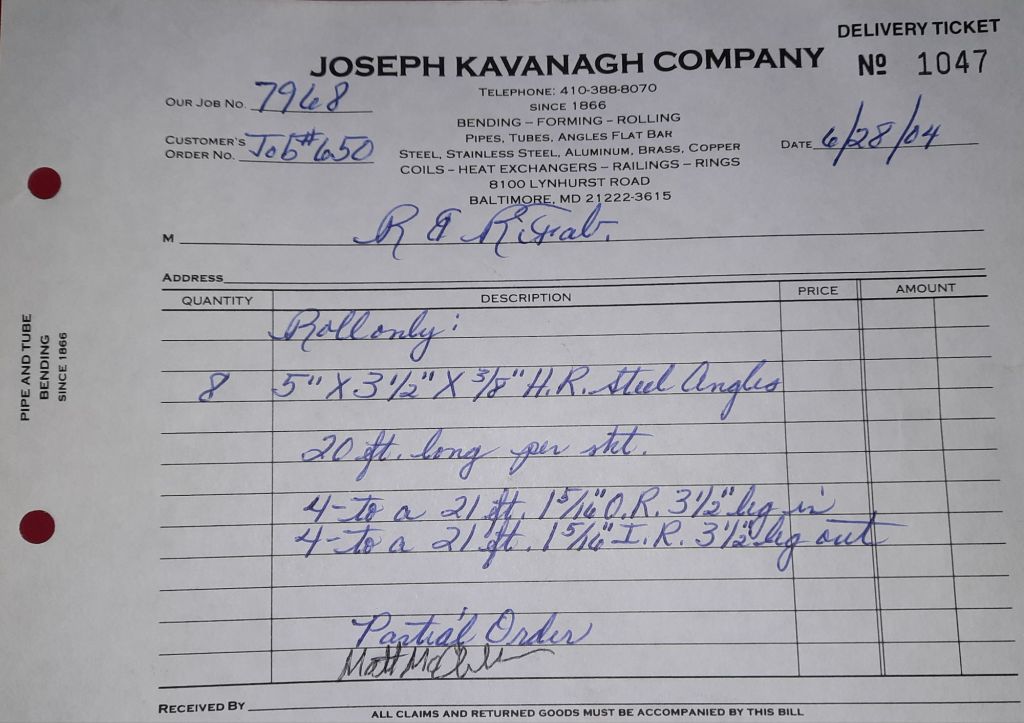 DELIVERY TICKET
JOSEPH KAVANAGH COMPANY
Nº 1047
TELEPHONE: 410-388-8070
SINCE 1866
BENDING – FORMING – ROLLING
PIPES, TUBES, ANGLES FLAT BAR
STEEL, STAINLESS STEEL, ALUMINUM, BRASS, COPPER
COILS – HEAT EXCHANGERS – RAILINGS – RINGS
8100 LYNHURST ROAD
BALTIMORE, MD 21222-3615
OUR JOB NO. 7968
CUSTOMER'S
ORDER NO. Job #650
DATE 6/28/04
M R & R Fab.
ADDRESS
QUANTITY DESCRIPTION PRICE AMOUNT
Roll only:
8 5" X 3 1/2" X 3/8" H.R. Steel Angles
20 ft. long per skt.
4-to a 21 ft. 1 5/16" O.R. 3 1/2" leg in
4-to a 21 ft. 1 5/16" I.R. 3 1/2" leg out
Partial Order
Matt
RECEIVED BY
ALL CLAIMS AND RETURNED GOODS MUST BE ACCOMPANIED BY THIS BILL
PIPE AND TUBE
BENDING
SINCE 1866